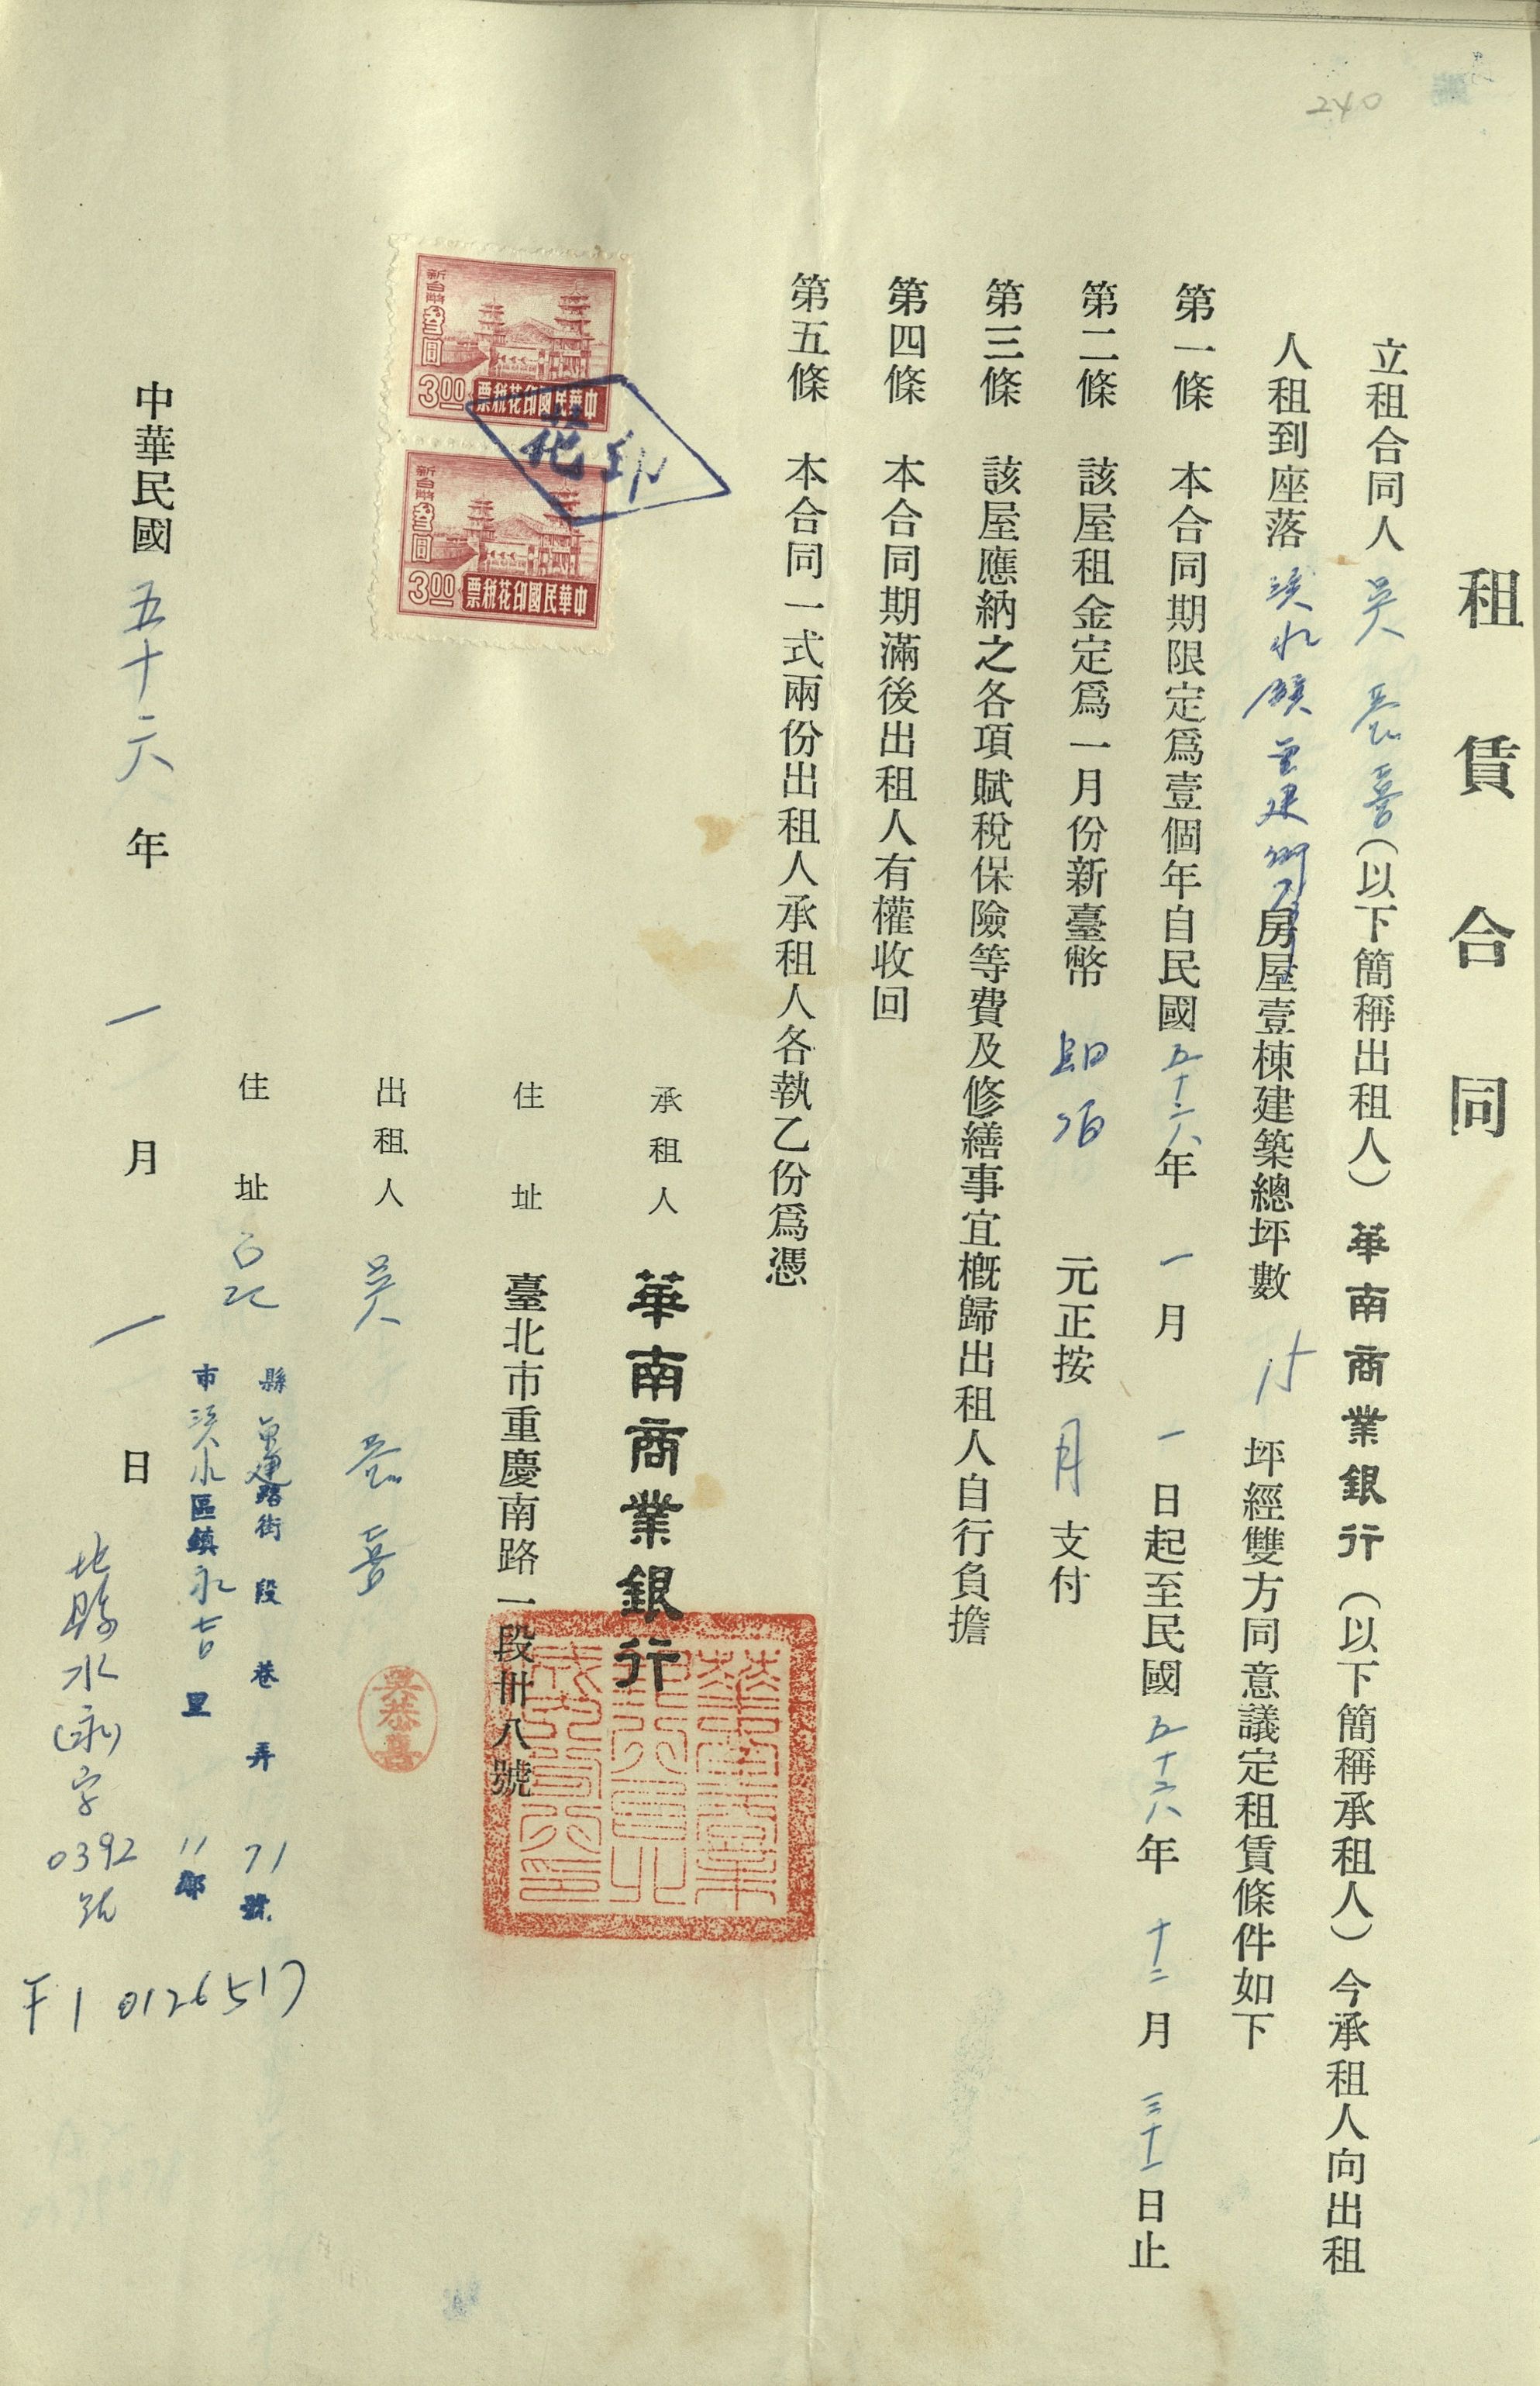 240
租賃合同
立租合同人 吳恭喜(以下簡稱出租人)華南商業銀行(以下簡稱承租人)今承租人向出租
人租到座落淡水鎮重建街 房屋壹棟建築總坪數 15 坪經雙方同意議定租賃條件如下
第一條 本合同期限定爲壹個年自民國五十六年一月一日起至民國五十六年十二月三十一日止
第二條 該屋租金定爲一月份新臺幣 佰 元正按月支付
第三條 該屋應納之各項賦稅保險等費及修繕事宜槪歸出租人自行負擔
第四條 本合同期滿後出租人有權收回
第五條 本合同一式兩份出租人承租人各執乙份爲憑
新台幣叁圓
3.00
中華民國印花稅票
新台幣叁圓
3.00
中華民國印花稅票
印花
承租人 華南商業銀行
住址 臺北市重慶南路一段卅八號
出租人 吳恭喜
吳恭喜
住址 台北
縣重建路街 段 巷 弄 71號
市淡水區鎮永吉里 11鄰
中華民國五十六年一月一日
北縣水(永)字0392號
F10126517